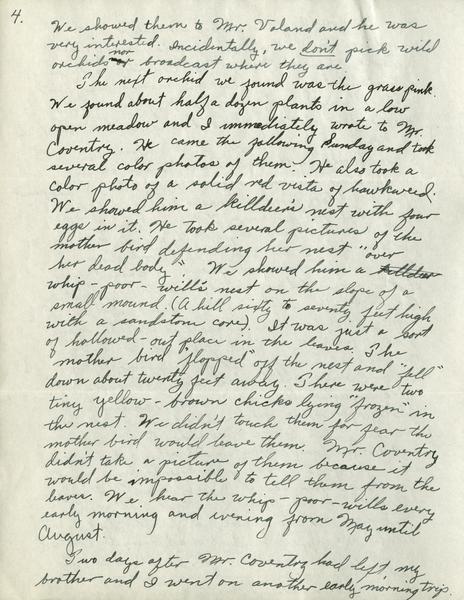 4.
We showed them to Mr. Voland and he was
very interested. Incidentally, we don't pick wild
orchids nor broadcast where they are
The next orchid we found was the grass pink.
We found about half a dozen plants in a low
open meadow and I immediately wrote to Mr.
Coventry. He came the following Sunday and took
several color photos of them. He also took a
color photo of a solid red vista of hawkweed.
We showed him a killdeer's nest with four
eggs in it. He took several pictures of the
mother bird defending her nest "over
her dead body". We showed him a killdeer
whip-poor-will's nest on the slope of a
small mound. (A hill sixty to seventy feet high
with a sandstone core). It was just a sort
of hollowed-out place in the leaves. The
mother bird "flopped" off the nest and "fell"
down about twenty feet away. There were two
tiny yellow-brown chicks lying "frozen" in
the nest. We didn't touch them for fear the
mother bird would leave them. Mr. Coventry
didn't take a picture of them because it
would be impossible to tell them from the
leaves. We hear the whip-poor-wills every
early morning and evening from May until
August.
Two days after Mr. Coventry had left, my
brother and I went on another early morning trip.